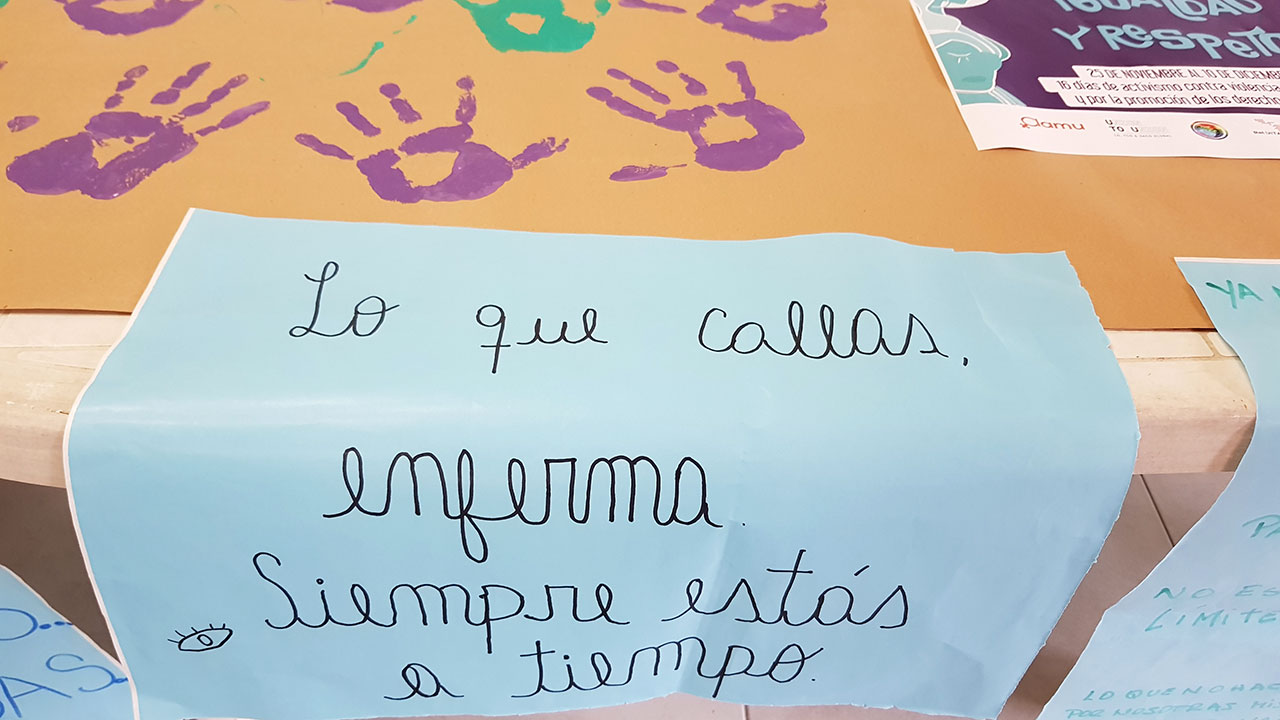 IGUALDAD
Y RESPETO
25 DE NOVIEMBRE AL 10 DE DICIEMBRE
16 días de activismo contra violencia
y por la promoción de los derechos
Qamu
TO U
Lo que callas,
enferma.
Siempre estás
a tiempo.
YA
NO ES
LÍMITE
LO QUE NO HAG
POR NOSOTRAS